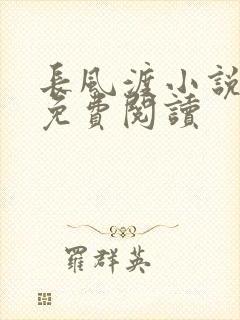 長風渡小說
免費閱讀
羅群英